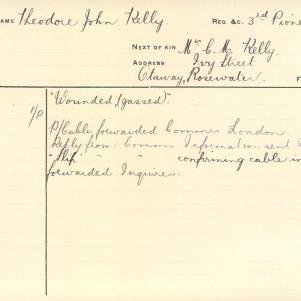 NAME Theodore John Kelly REG. &C. 3rd Pione
NEXT OF KIN Mrs C. M. Kelly.
ADDRESS Ivy Street
Otaway, Rosewater F
1/p "Wounded (gassed)".
P/Cable forwarded Commrs London.
Reply from Commrs Information sent
"Slip" " " confirming cable in
forwarded Inquirer.